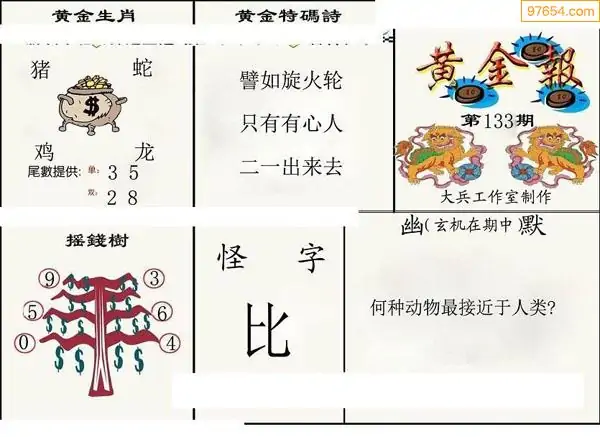 97654.com
黄金生肖
猪 蛇
$
鸡 龙
尾數提供: 单: 3 5
双: 2 8
黄金特碼詩
譬如旋火轮
只有有心人
二一出来去
黄金報
第133期
大兵工作室制作
摇錢樹
9 3
5 6
0 4
怪 字
比
幽(玄机在期中)默
何种动物最接近于人类?